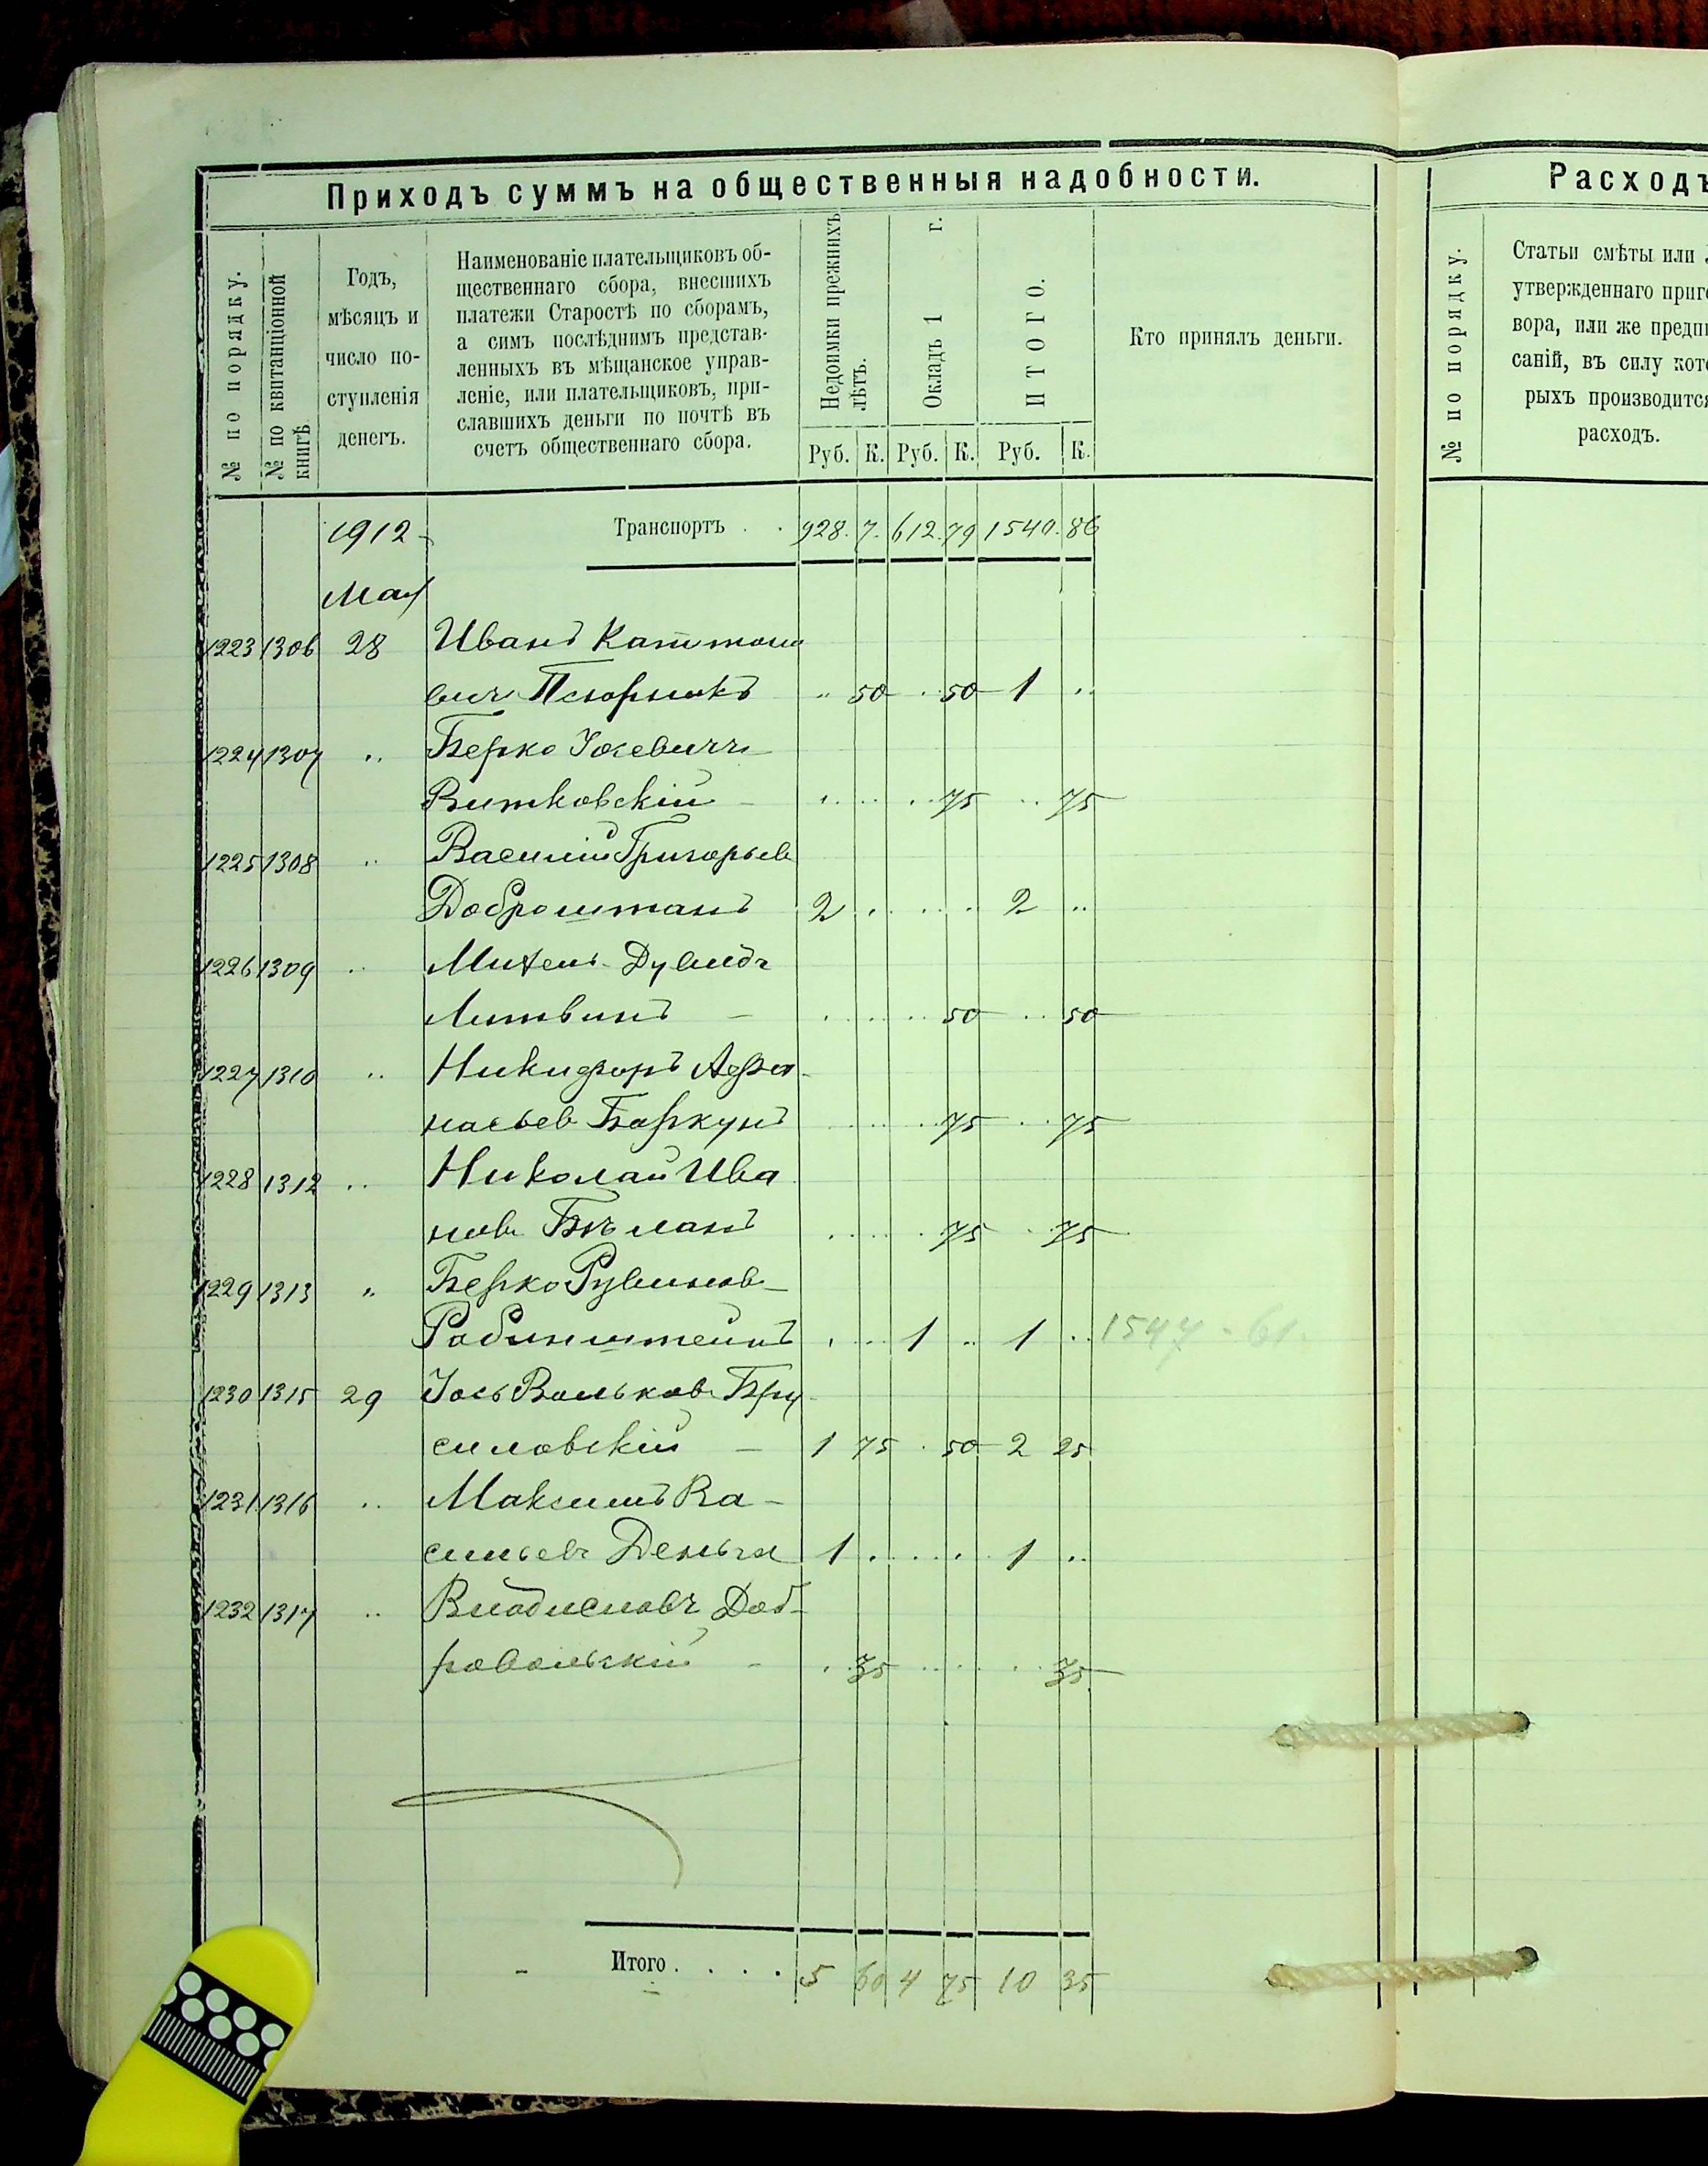 Приходъ суммъ на общественныя надобности.
№ по порядку.
№ по квитанціонной
книгѣ.
Годъ,
мѣсяцъ и
число по-
ступленія
денегъ.
Наименованіе плательщиковъ об-
щественнаго сбора, внесшихъ
платежи Старостѣ по сборамъ,
а симъ послѣднимъ представ-
ленныхъ въ мѣщанское управ-
леніе, или плательщиковъ, при-
славшихъ деньги по почтѣ въ
счетъ общественнаго сбора.
Недоимки прежнихъ
лѣтъ.
Окладъ 1 г.
ИТОГО.
Кто принялъ деньги.
Руб. К. Руб. К. Руб. К.
1912 Транспортъ . . 928. 7. 612. 79 1540. 86
Мая
1223 1306 28 Иванъ
50 50 1 ..
1224 1307 .. Берко Іосевичъ
Витковскій 75 75
1225 1308 .. Василій Григорьев
Доброштанъ 2 2 ..
1226 1309 .. Михель Дувидъ
Литвинъ 50 50
1227 1310 .. Никифоръ Афа-
насьев Баркунъ 75 75
1228 1312 .. Николай Ива
нов Бѣланъ 75 75
1229 1313 .. Берко Рувинов
Рабинштейнъ 1 .. 1 .. 1547 - 61.
1230 1315 29 Іось Вольков Бру-
силовскій 1 75 50 2 25
1231 1316 .. Максимъ Ва-
сильев 1 1 ..
1232 1317 .. Доб-
ровольскій 35 35
Итого . . . . 5 60 4 75 10 35
Расходъ
№ по порядку.
Статьи смѣты или
утвержденнаго приго
вора, или же предпи
саній, въ силу кото
рыхъ производится
расходъ.